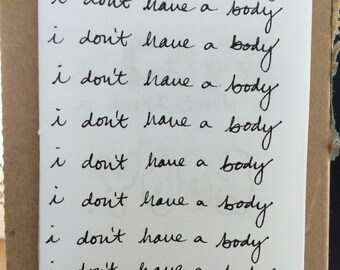 i don't have a body
i don't have a body
i don't have a body
i don't have a body
i don't have a body
i don't have a body
i don't have a body
i don't have a body